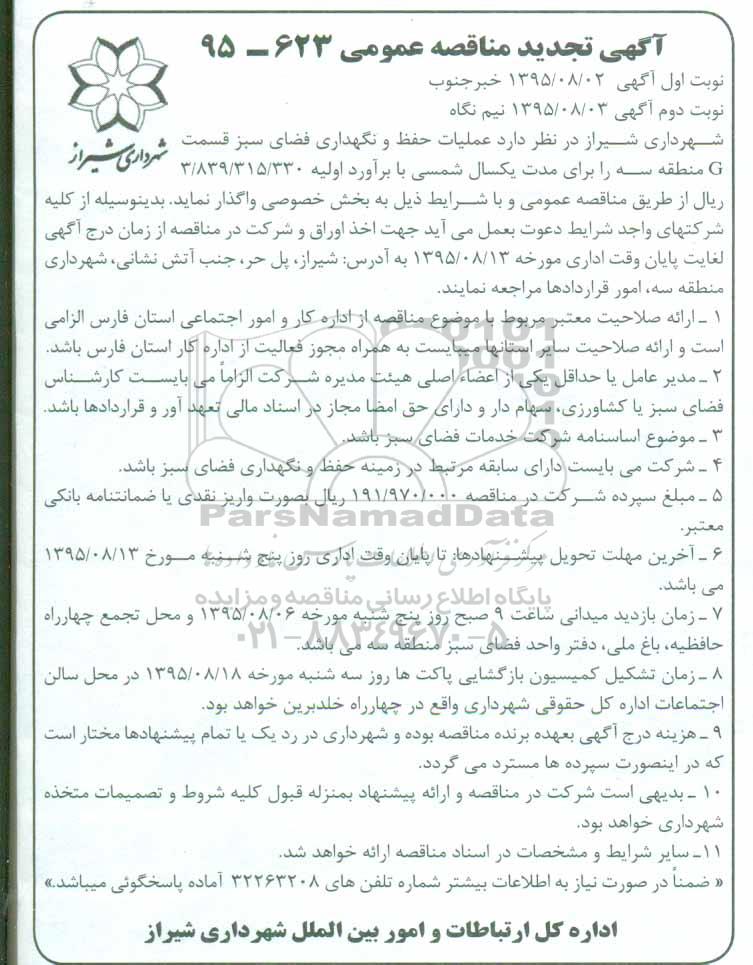 آگهی تجدید مناقصه عمومی ۶۲۳ ــ ۹۵
نوبت اول آگهی ۱۳۹۵/۰۸/۰۲ خبرجنوب
نوبت دوم آگهی ۱۳۹۵/۰۸/۰۳ نیم نگاه
شهرداری شیراز
شـــهرداری شـــیراز در نظر دارد عملیات حفظ و نگهداری فضای سبز قسمت
G منطقه ســـه را برای مدت یکسال شمسی با برآورد اولیه ۳/۸۳۹/۳۱۵/۳۳۰
ریال از طریق مناقصه عمومی و با شـــرایط ذیل به بخش خصوصی واگذار نماید. بدینوسیله از کلیه
شرکتهای واجد شرایط دعوت بعمل می آید جهت اخذ اوراق و شرکت در مناقصه از زمان درج آگهی
لغایت پایان وقت اداری مورخه ۱۳۹۵/۰۸/۱۳ به آدرس: شیراز، پل حر، جنب آتش نشانی، شهرداری
منطقه سه، امور قراردادها مراجعه نمایند.
۱ ـ ارائه صلاحیت معتبر مربوط با موضوع مناقصه از اداره کار و امور اجتماعی استان فارس الزامی
است و ارائه صلاحیت سایر استانها میبایست به همراه مجوز فعالیت از اداره کار استان فارس باشد.
۲ ـ مدیر عامل یا حداقل یکی از اعضاء اصلی هیئت مدیره شـــرکت الزاماً می بایســـت کارشـــناس
فضای سبز یا کشاورزی، سهام دار و دارای حق امضا مجاز در اسناد مالی تعهد آور و قراردادها باشد.
۳ ـ موضوع اساسنامه شرکت خدمات فضای سبز باشد.
۴ ـ شرکت می بایست دارای سابقه مرتبط در زمینه حفظ و نگهداری فضای سبز باشد.
۵ ـ مبلغ سپرده شـــرکت در مناقصه ۱۹۱/۹۷۰/۰۰۰ ریال بصورت واریز نقدی یا ضمانتنامه بانکی
ParsNamadData
معتبر.
۶ ـ آخرین مهلت تحویل پیشـــنهادها: تا پایان وقت اداری روز پنج شـــنبه مـــورخ ۱۳۹۵/۰۸/۱۳
می باشد.
پایگاه اطلاع رسانی مناقصه و مزایده
۷ ـ زمان بازدید میدانی ساعت ۹ صبح روز پنج شنبه مورخه ۱۳۹۵/۰۸/۰۶ و محل تجمع چهارراه
۰۲۱-۸۸۳۴۹۶۷۰-۵
حافظیه، باغ ملی، دفتر واحد فضای سبز منطقه سه می باشد.
۸ ـ زمان تشکیل کمیسیون بازگشایی پاکت ها روز سه شنبه مورخه ۱۳۹۵/۰۸/۱۸ در محل سالن
اجتماعات اداره کل حقوقی شهرداری واقع در چهارراه خلدبرین خواهد بود.
۹ ـ هزینه درج آگهی بعهده برنده مناقصه بوده و شهرداری در رد یک یا تمام پیشنهادها مختار است
که در اینصورت سپرده ها مسترد می گردد.
۱۰ ـ بدیهی است شرکت در مناقصه و ارائه پیشنهاد بمنزله قبول کلیه شروط و تصمیمات متخذه
شهرداری خواهد بود.
۱۱ـ سایر شرایط و مشخصات در اسناد مناقصه ارائه خواهد شد.
« ضمناً در صورت نیاز به اطلاعات بیشتر شماره تلفن های ۳۲۲۶۳۲۰۸ آماده پاسخگوئی میباشد.»
اداره کل ارتباطات و امور بین الملل شهرداری شیراز